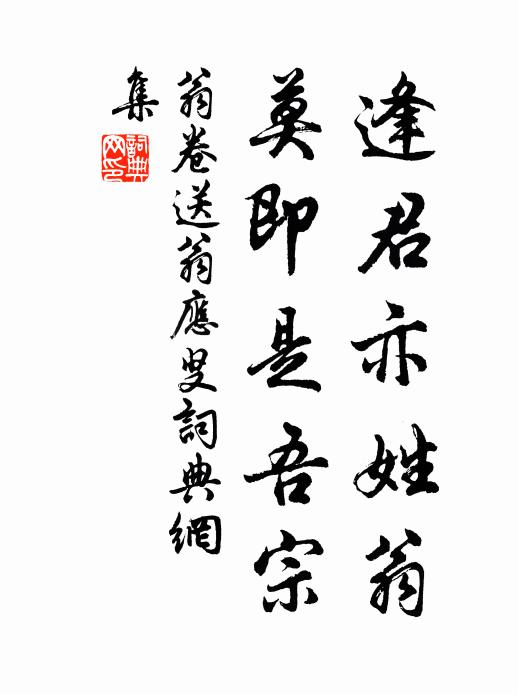 逢君亦姓翁
莫即是吾宗
翁卷送翁應叟詞典網
集
詞典
网印